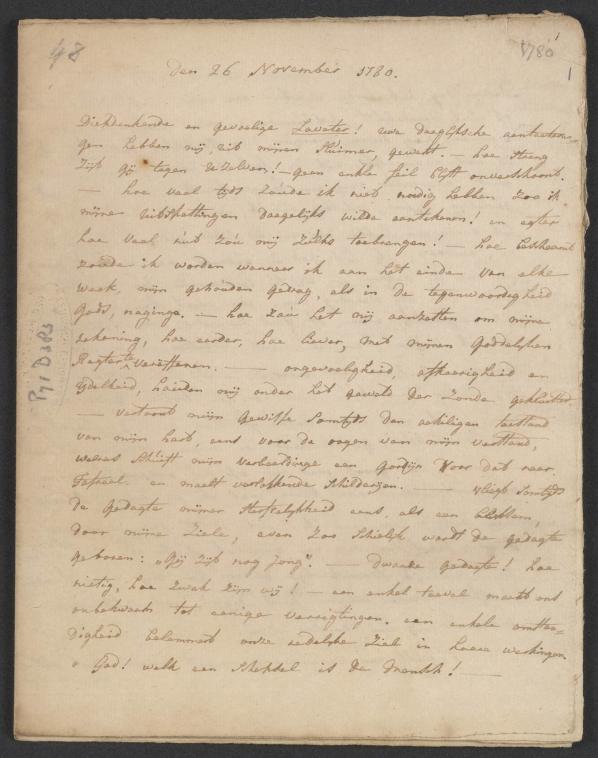 48
1780
1
den 26 November 1780.
Diepdenkende en gevoelige Lavater! uwe dagelijksche aanteeken-
gen hebben mij uit mijnen sluimer, gewekt. — hoe streng
zijt gij tegen U zelven! — geen enkle feil blijft onverschoont.
— hoe veel tijds zoude ik niet nodig hebben zoo ik
mijne uitspattingen dagelijks wilde aantekenen! en egter
hoe veel nut zou mij zulks toebrengen! — hoe beschaamt
zoude ik worden wanneer ik aan het einde van elke
week, mijn gehouden gedrag, als in de tegenwoordigheid
Gods, naginge. — hoe zou het mij aanzetten om mijne
rekening, hoe eerder, hoe liever, met mijnen Goddelijken
Regter te vereffenen. — ongevoeligheid, afkeerigheid en
ijdelheid, houden mij onder het gewelt der zonde gekluistert
— vertoont mijn gewisse somtijds den akeligen toestand
van mijn hart, eens voor de oogen van mijn verstand,
weeras schuift mijn verbeeldinge een gordijn voor dat naar
Tafreel en maalt verlokkende schilderijen. — vliegt somtijds
de gedagte mijner sterfelijkheid eens, als een blixem,
door mijne ziele, even zoo schielijk wordt de gedagte
geboren: „Gij zijt nog jong". — dwaaze gedagte! hoe
nietig, hoe zwak zijn wij! — een enkel toeval maakt ons
onbekwaam tot eenige verrigtingen. een enkele omstan-
digheid belemmert onze redelyke ziel in haare werkingen
o God! welk een schepsel is de mensch! —